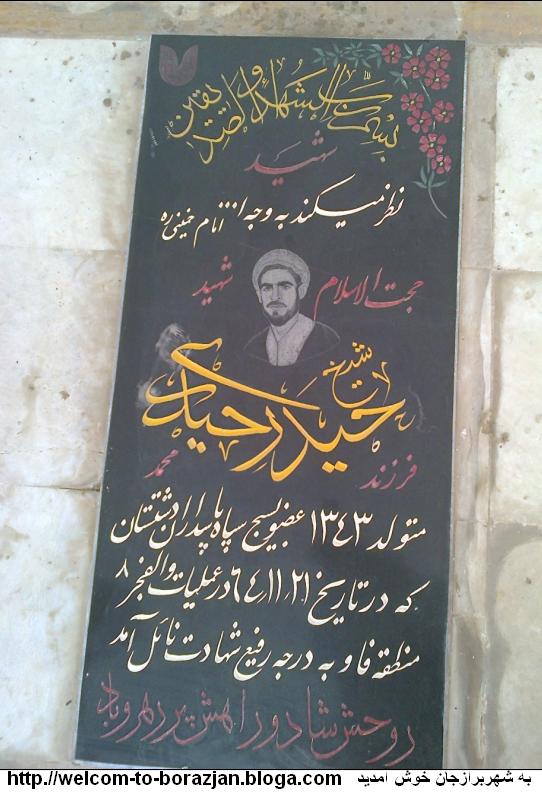 بسم رب الشهداء و الصدیقین
شهید
نظر میکند به وجه ا... امام خمینی ره
حجت الاسلام شهید
شیخ
حیدر حیاتی
فرزند محمد
متولد ۱۳۴۳ عضو بسیج سپاه پاسداران دشتستان
که در تاریخ ۶۴/۱۱/۲۱ در عملیات والفجر ۸
منطقه فاو به درجه رفیع شهادت نائل آمد
روحش شاد و راهش پر رهرو باد
به شهربرازجان خوش آمدید http://welcom-to-borazjan.bloga.com